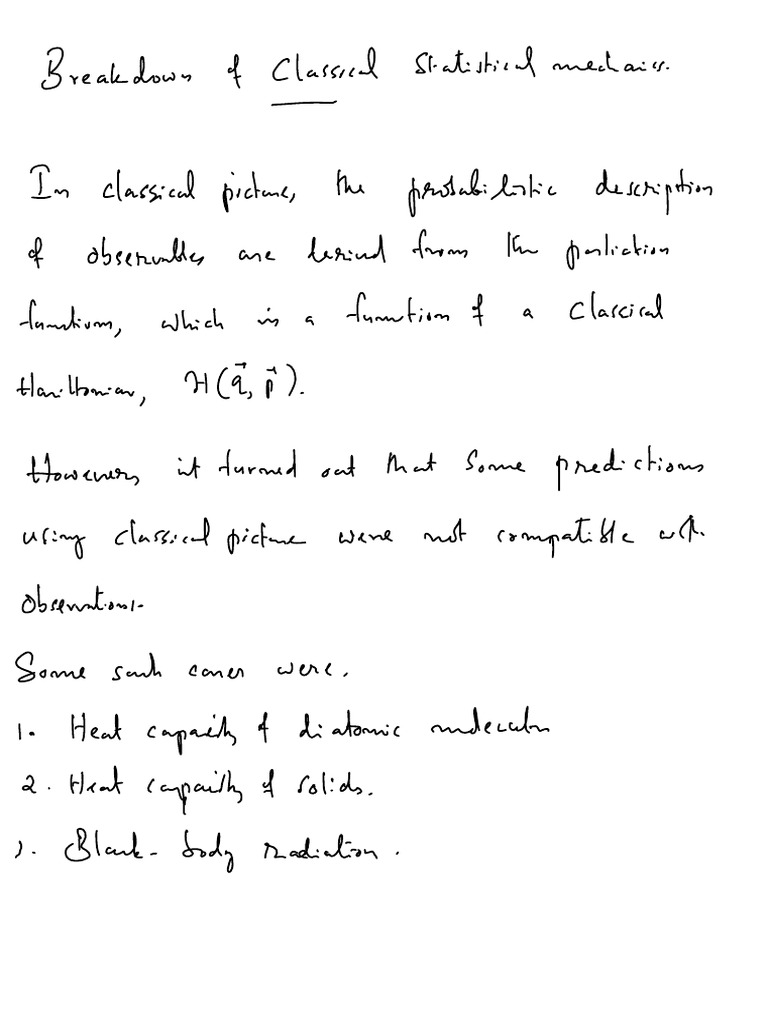 Breakdown of Classical Statistical mechanics.
In classical picture, the probabilistic description
of observables are derived from the partiction
functions, which is a function of a Classical
Hamiltonian, H(q⃗, p⃗).
However, it turned out that some predictions
using classical picture were not compatible with
observations.
Some such cases were.
1. Heat capacity of diatomic molecules
2. Heat capacity of solids.
3. Black-body radiation.